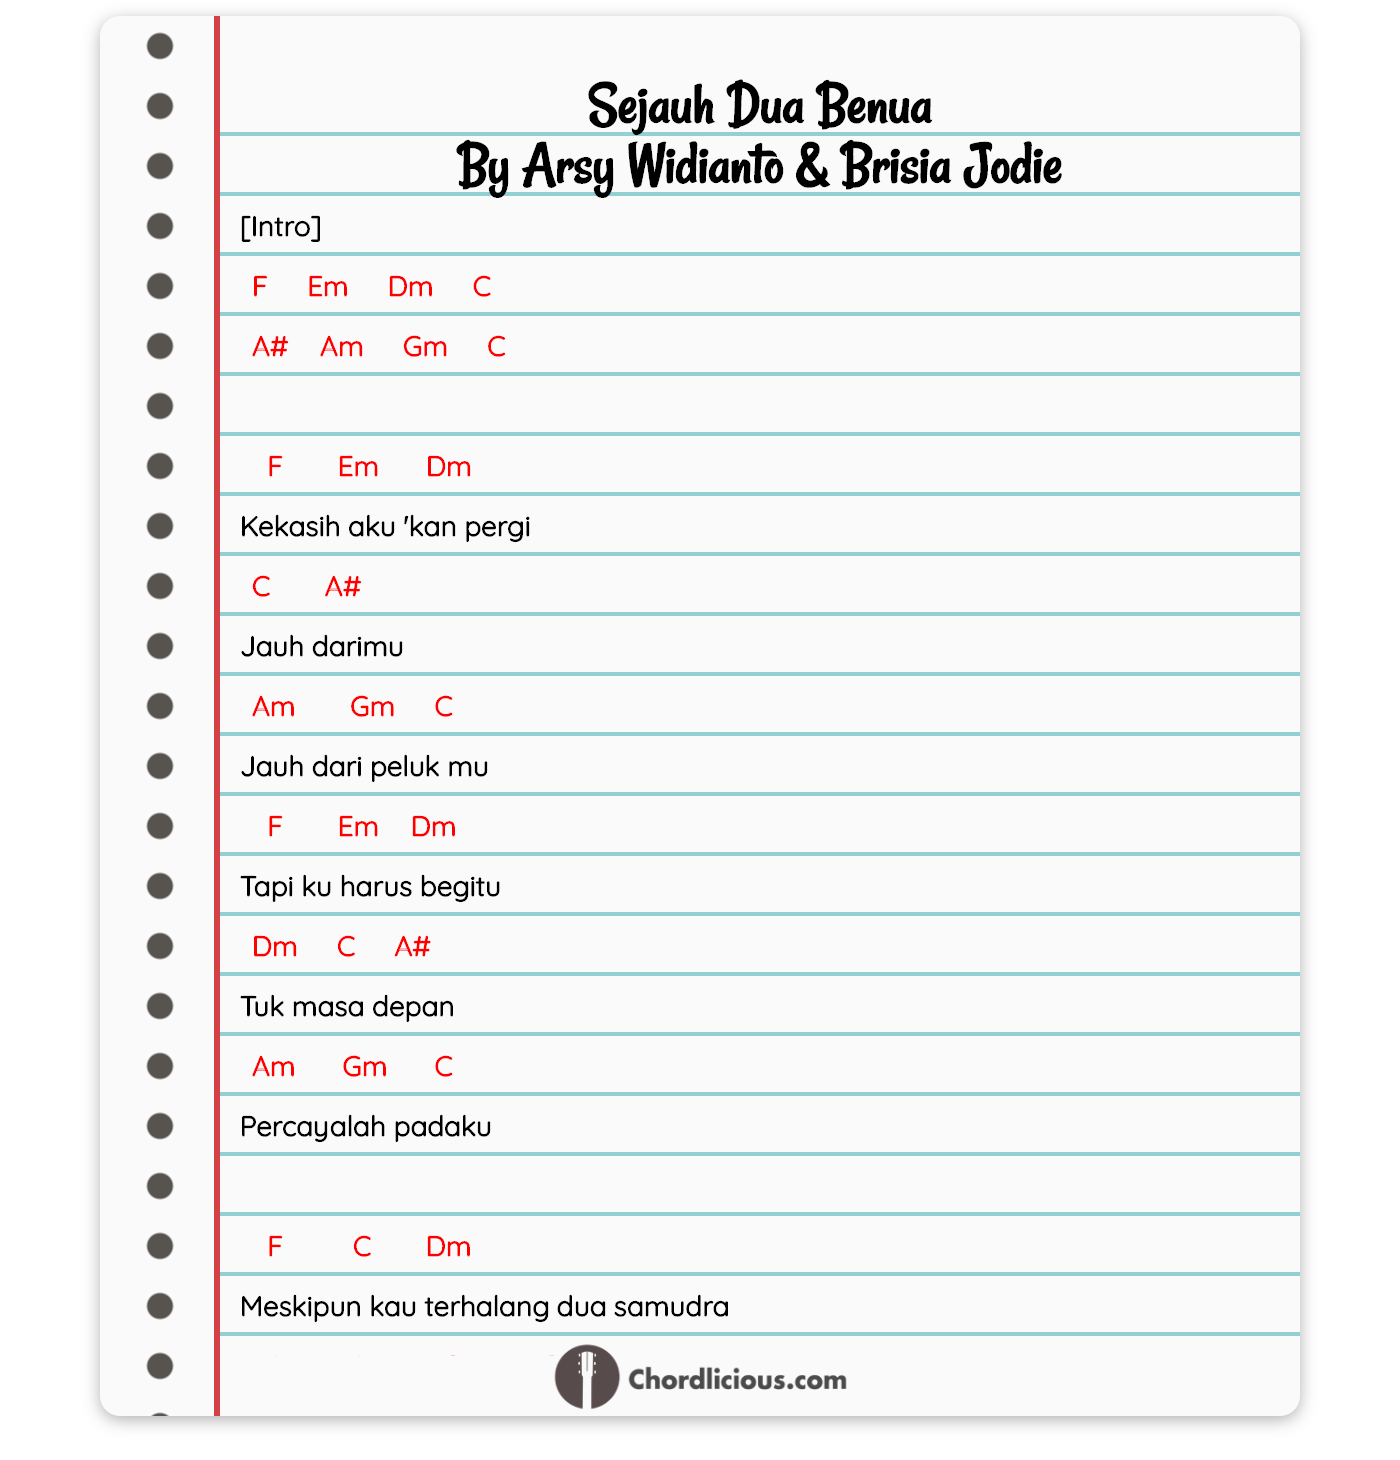 Sejauh Dua Benua
By Arsy Widianto & Brisia Jodie
[Intro]
F Em Dm C
A# Am Gm C
F Em Dm
Kekasih aku 'kan pergi
C A#
Jauh darimu
Am Gm C
Jauh dari peluk mu
F Em Dm
Tapi ku harus begitu
Dm C A#
Tuk masa depan
Am Gm C
Percayalah padaku
F C Dm
Meskipun kau terhalang dua samudra
Chordlicious.com